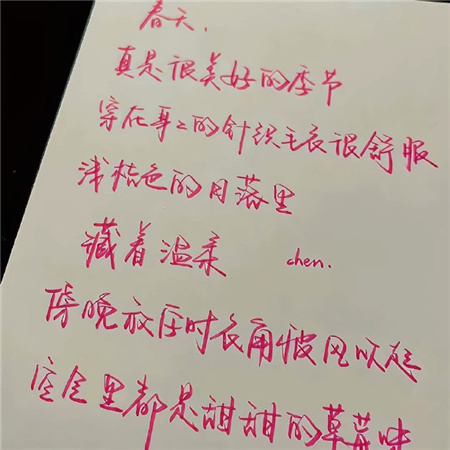 春天.
真是很美好的季节
穿在身上的针织毛衣很舒服
浅桔色的日落里
藏着温柔 chen.
傍晚放时衣角被风吹起
空气里都是甜甜的草莓味